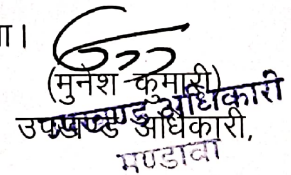 ा।
(मुनेश कुमारी)
उपखण्ड अधिकारी
उपखण्ड अधिकारी,
मण्डावा